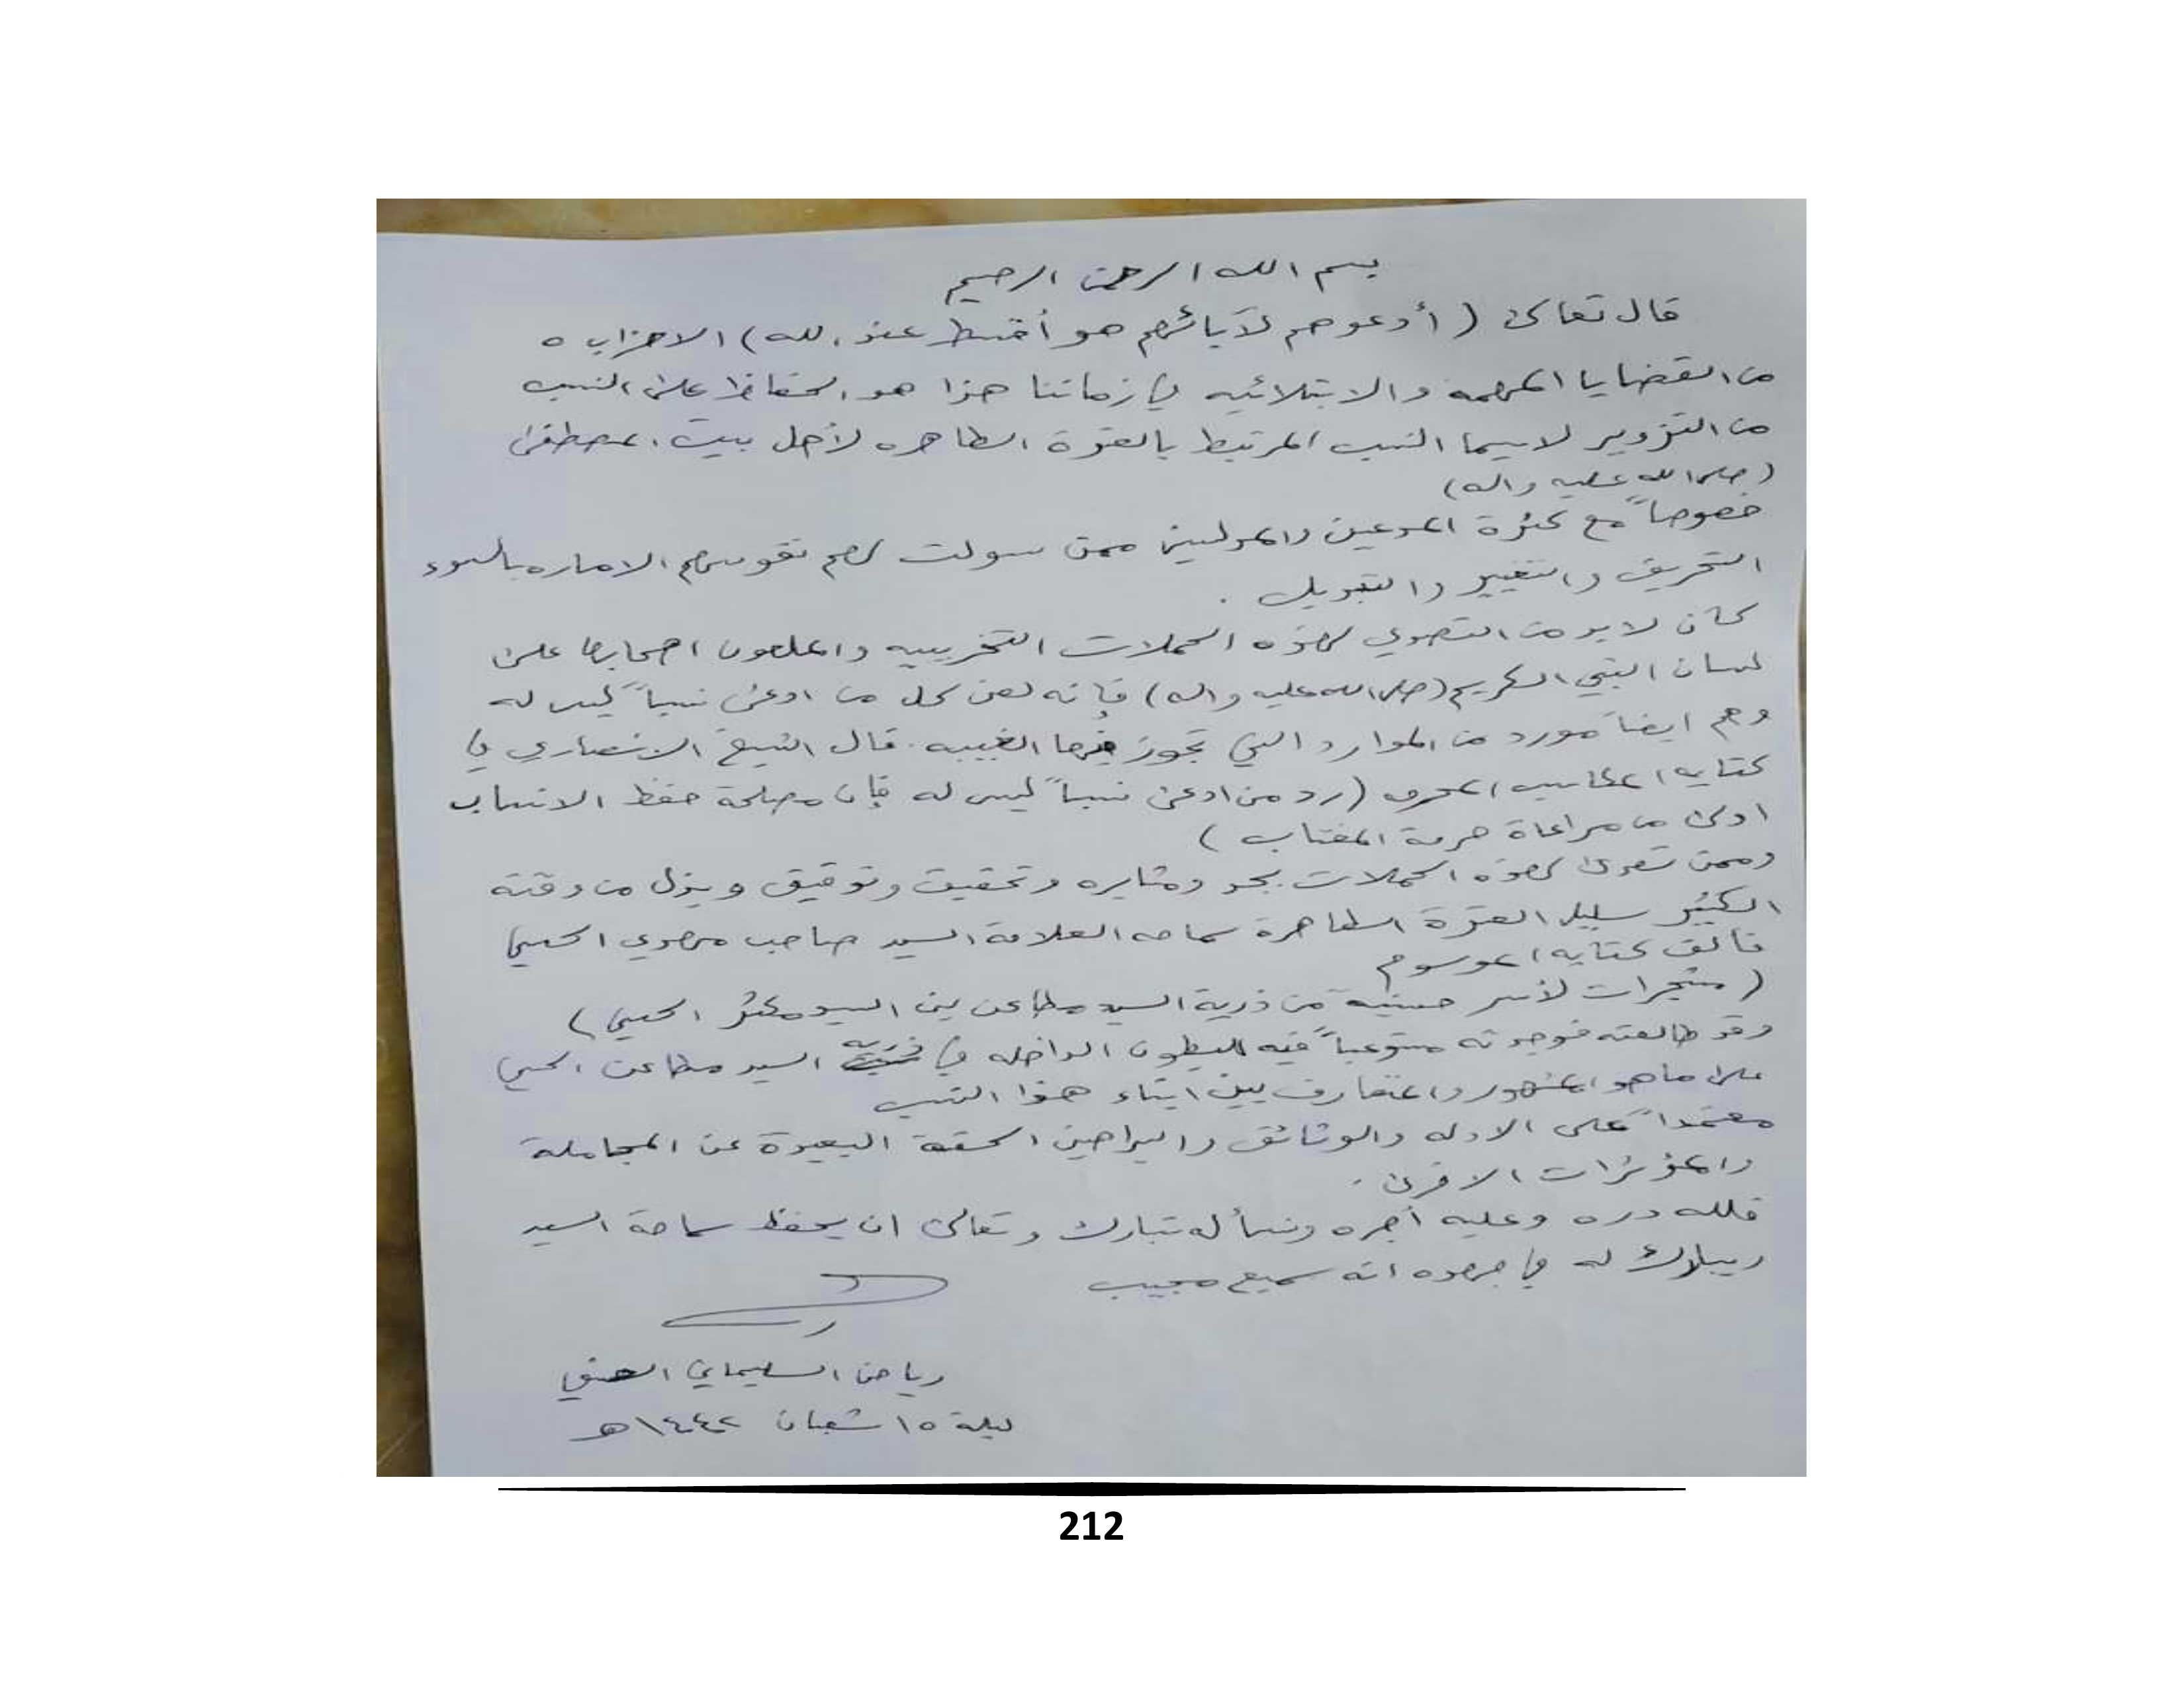 بسم الله الرحمن الرحيم
قال تعالى (أدعوهم لآبائهم هو أقسط عند الله) الاحزاب ٥
من القضايا المهمه والابتلائيه في زماننا هذا هو الحفاظ على النسب
من التزوير لاسيما النسب المرتبط بالعترة الطاهره لأهل بيت المصطفى
(صلى الله عليه واله)
خصوصاً مع كثرة المدعين والمدلسين ممن سولت لهم نفوسهم الاماره بالسوء
التحريف والتغيير والتبديل .
كان لابد من التصدي لهذه الحملات التخريبيه والملعون اصحابها على
لسان النبي الكريم (صلى الله عليه واله) فإنه لعن كل من ادعى نسباً ليس له
وهم ايضاً مورد من الموارد التي تجوز فيها الغيبه . قال الشيخ الانصاري في
كتابه المكاسب المحرمه (رد من ادعى نسباً ليس له فإن مصلحة حفظ الانساب
اولى من مراعاة حرمة المغتاب)
وممن تصدى لهذه الحملات بجد ومثابره وتحقيق وتدقيق وبذل من وقته
الكثير سليل العترة الطاهرة سماحه العلامة السيد صاحب مهدي الحسني
فألف كتابه الموسوم
(مشجرات لأسر حسنية من ذرية السيد مطاعن بن السيد مكثر الحسني)
وقد طالعته فوجدته مستوعباً فيه البطون الداخله في ذريه السيد مطاعن الحسني
على ماهو المشهور والمتعارف بين ابناء هذا النسب
معتمداً على الادله والوثائق والبراهين الحقة البعيدة عن المجاملة
والمؤثرات الاخرى .
فلله دره وعليه أجره ونسأله تبارك وتعالى ان يحفظ سماحة السيد
ويبارك له في جهوده انه سميع مجيب
رياض السليماني الحسني
ليلة ١٥ شعبان ١٤٤٢هـ
212